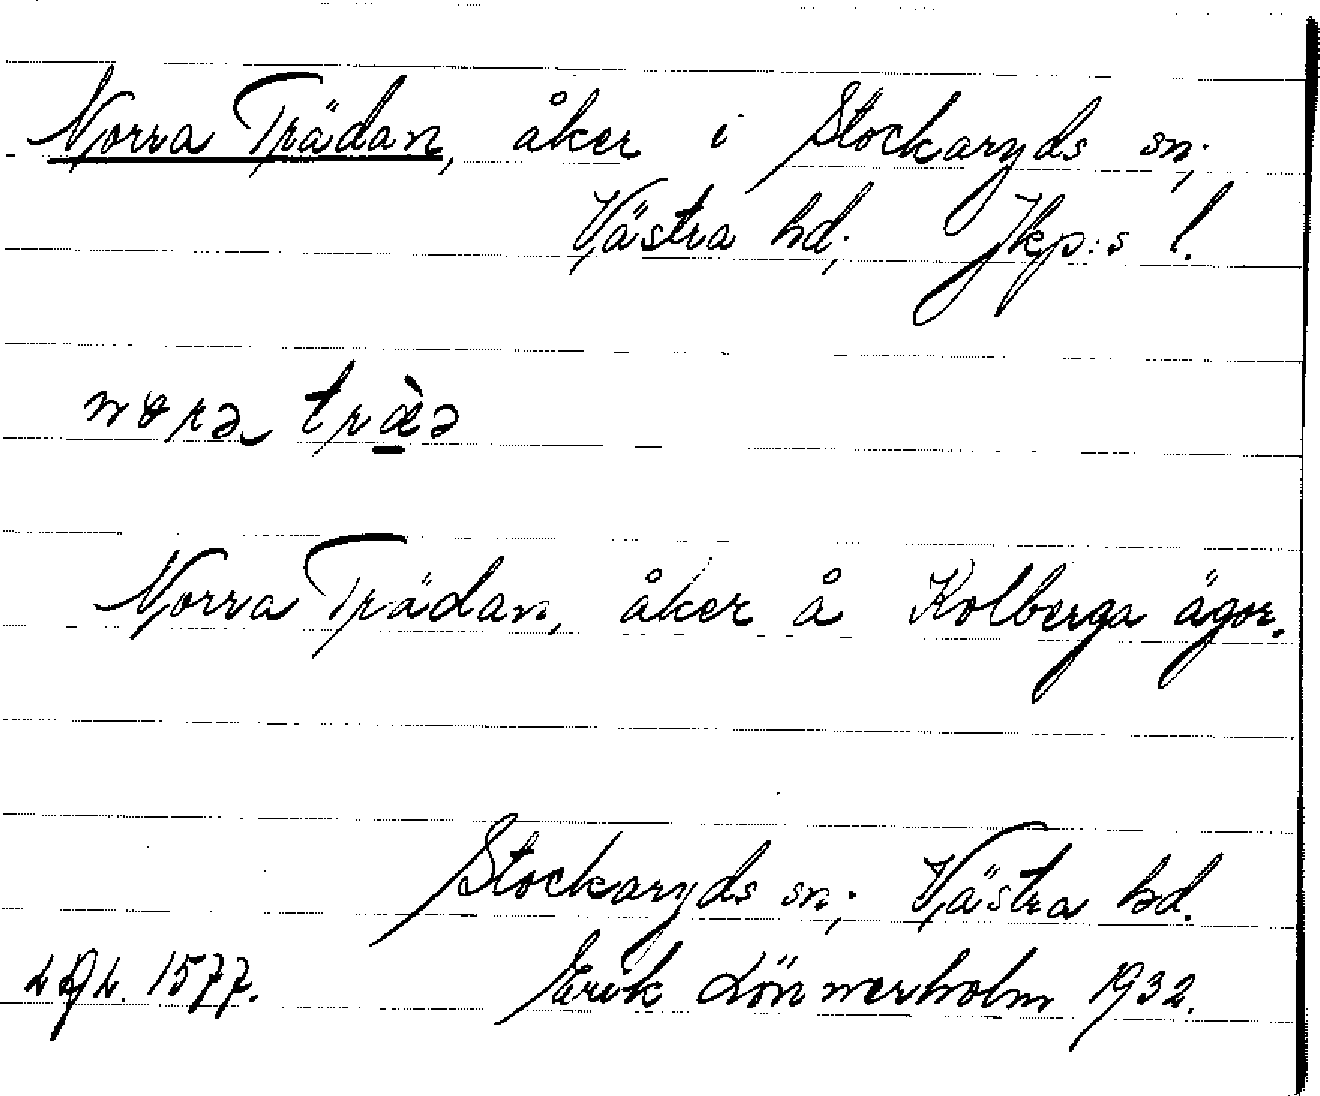 Norra Trädan, åker i Stockaryds sn;
Västra hd; Jkp:s l.
Norra Trädan, åker å Kolberga ägor.
Stockaryds sn; Västra hd.
1577. Erik Lönnerholm 1932.